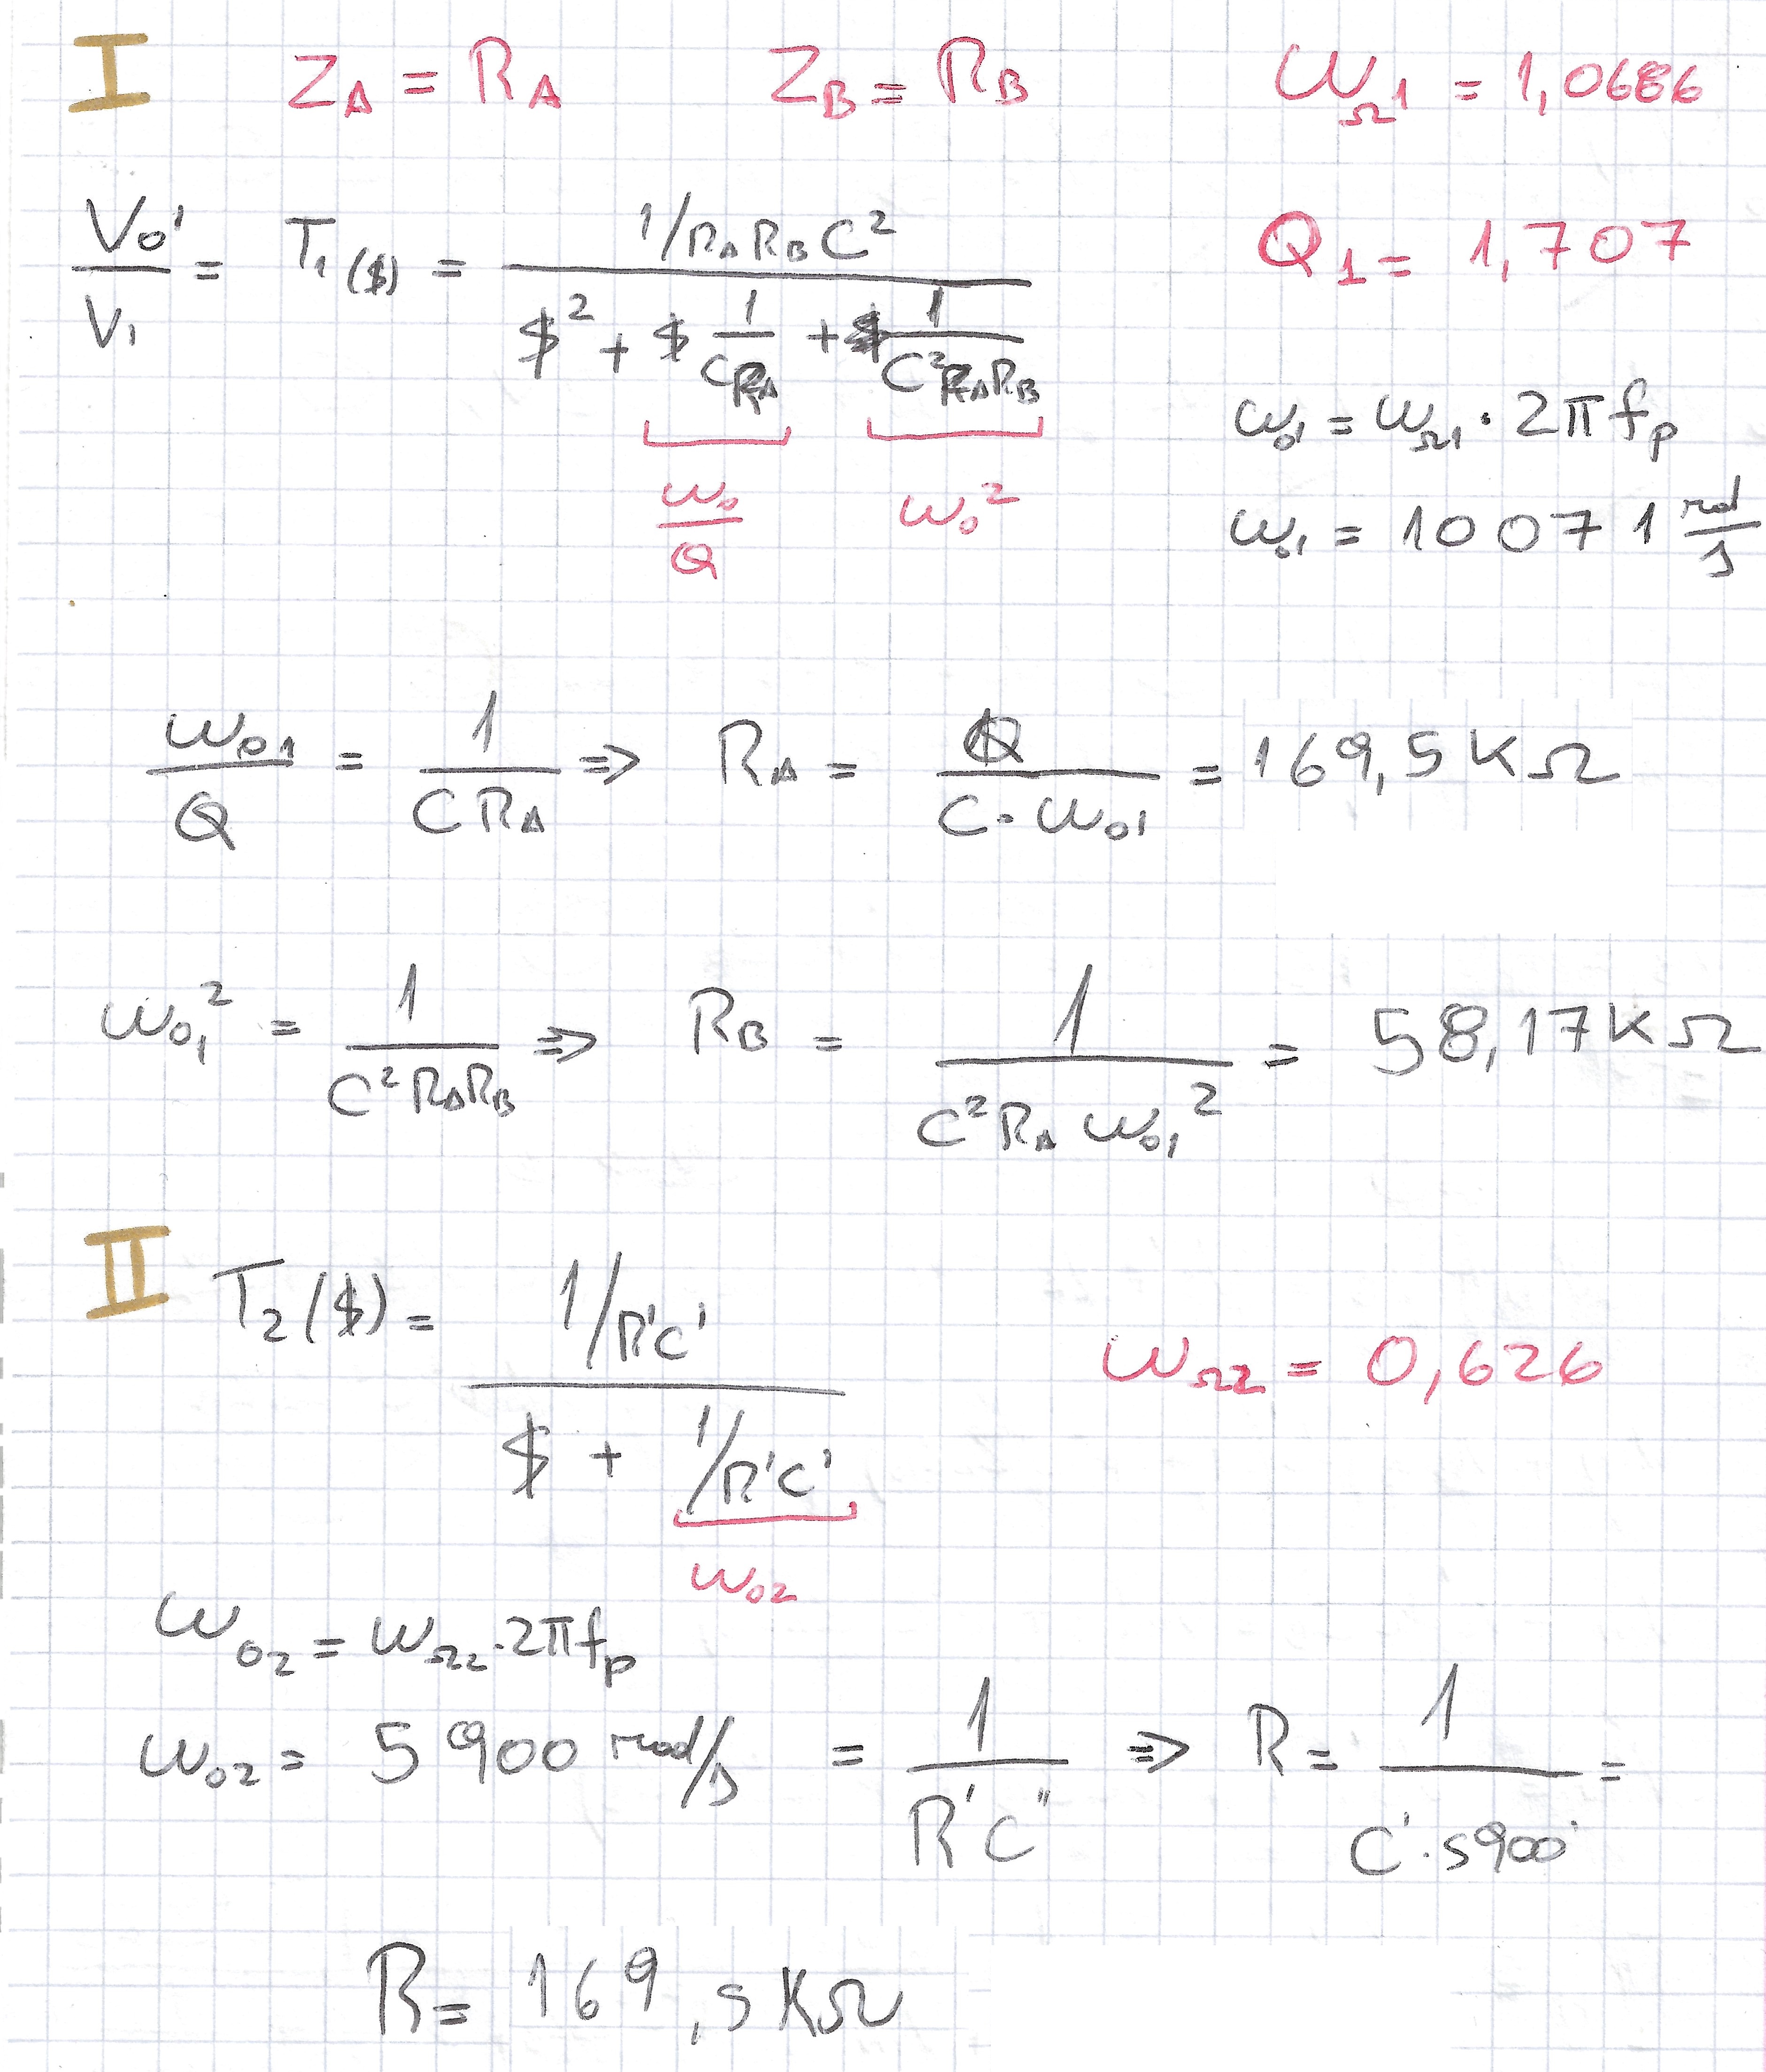 I Z_A = R_A Z_B = R_B ω_Ω1 = 1,0686
V_o' / V_1 = T_1($) = (1/R_A R_B C²) / ($² + $ 1/(C R_A) + 1/(C² R_A R_B)) Q_1 = 1,707
ω_0/Q ω_0²
ω_01 = ω_Ω1 · 2π f_p
ω_01 = 10071 rad/s
ω_01/Q = 1/(C R_A) ⇒ R_A = Q/(C · ω_01) = 169,5 KΩ
ω_01² = 1/(C² R_A R_B) ⇒ R_B = 1/(C² R_A ω_01²) = 58,17 KΩ
II T_2($) = (1/R'C') / ($ + 1/R'C') ω_Ω2 = 0,626
ω_02
ω_02 = ω_Ω2 · 2π f_p
ω_02 = 5900 rad/s = 1/(R'C'') ⇒ R = 1/(C' · 5900) =
R = 169,5 KΩ